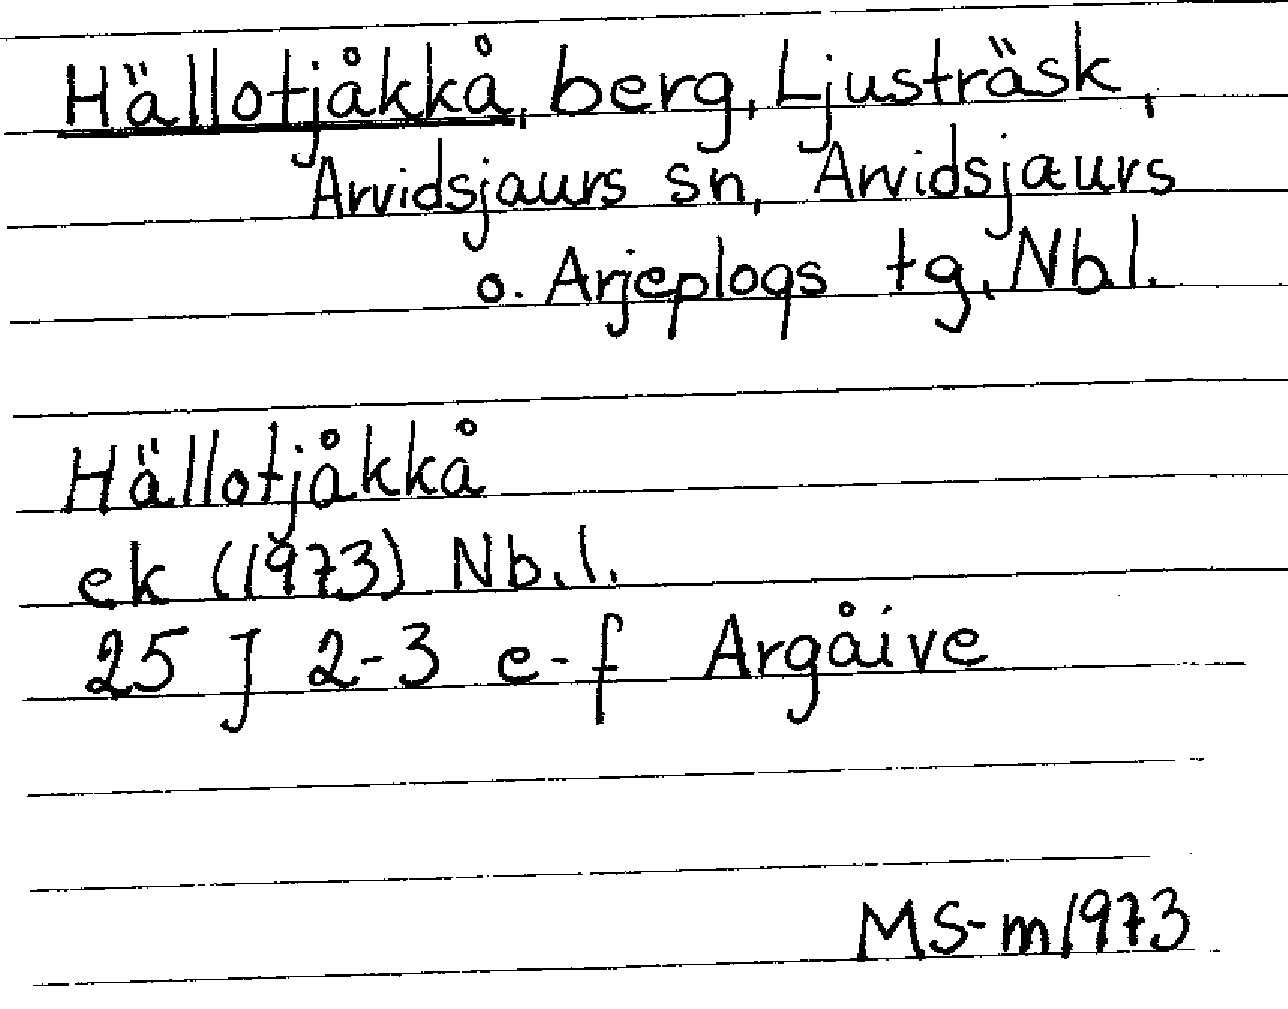 Hällotjåkkå, berg, Ljusträsk,
Arvidsjaurs sn, Arvidsjaurs
o. Arjeplogs tg, Nb.l.
Hällotjåkkå
ek (1973) Nb.l.
25 J 2-3 e-f Argåive
MS-m 1973